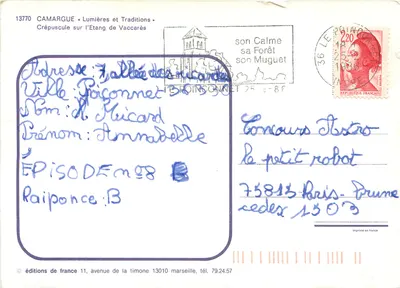 13770 CAMARGUE - « Lumières et Traditions »
Crépuscule sur l'Etang de Vaccarès
son Calme
sa Forêt
son Muguet
36 LE POINÇONNET
2,20
Adresse: 7 allée des
Ville Poinçonnet 36
Nom: Micard
Prénom: Annabelle
EPISODE n°8 B
Raiponce: B
Concours Astro
le petit robot
75815 Paris-Brune
cedex 1503
® éditions de france 11, avenue de la timone 13010 marseille, tél. 79.24.57